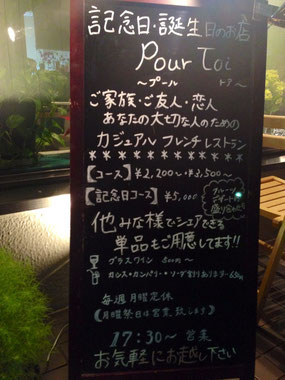 記念日・誕生日のお店
Pour Toi
～プール トア～
ご家族・ご友人・恋人
あなたの大切な人のための
カジュアル フレンチ レストラン
＊＊＊＊＊＊＊＊＊＊＊
【コース】￥2,200～￥3,500～
【記念日コース】￥5,000
フルーツ
デザート
盛り合わせ
他みな様でシェアできる
単品もご用意してます!!
グラスワイン 500～
カシス・カンパリー・ソーダ割りあります
毎週月曜定休
【月曜祭日は営業致します】
17:30～営業
お気軽にお越し下さい